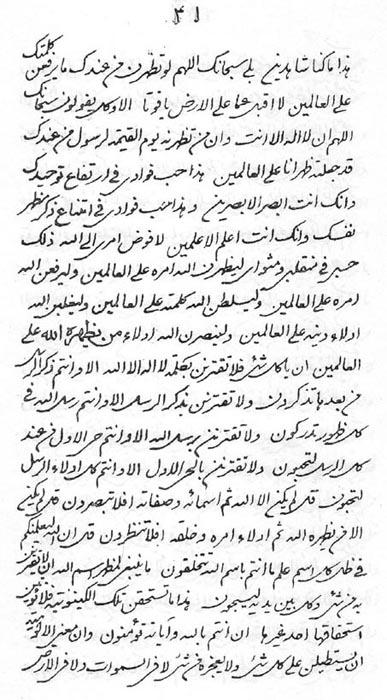 ۴۱
هذا ما كنا شاهدين بلى سبحانك اللهم لو تظهرن من عندك ما يرفعن كلمتك
على العالمين لا افي بما على الارض ياقوتا الا وكل يقولون سبحانك
اللهم ان لا اله الا انت وان من تظهرنه يوم القيمة لرسول من عندك
قد جعلته ظهرانا على العالمين هذا حب فوادى في ارتفاع توحيدك
وانك انت ابصر الابصرين وهذا حب فوادى في امتناع ذكر مظهر
نفسك وانك انت اعلم الاعلمين لافوض امرى الى الله ذلك
حسبى في منقلبى ومثواى ليظهرن الله امره على العالمين وليرفعن الله
امره على العالمين وليسلطن الله كلمته على العالمين وليغلبن الله
ادلاء دينه على العالمين ولينصرن الله ادلاء من يظهره الله على
العالمين ان يا كل شئ فلا تقترنن بكلمة لا اله الا الله الا وانتم ذكر
من بعدها تذكرون ولا تقترنن بذكر الرسل الا وانتم رسل الله في
كل ظهور تدركون ولا تقترنن برسل الله الا وانتم حى الاول من عند
كل الرسل لتحبون ولا تقترنن بالحى الاول الا وانتم كل ادلاء الرسل
لتحبون قل لم يكن الا الله ثم اسمائه وصفاته افلا تبصرون قل لم يكن
الا من يظهره الله ثم ادلاء امره وخلقه افلا تنظرون قل ان الله ليعلمنكم
في ظل كل اسم علما انتم باسم الله تتخلقون ما ينبغى لمظهر اسم الله ان
به من شئ وكل بين يديه ليسجدون هذا ما تستحقن تلك الكينونية
استحقاقها احد غيرها ان انتم بالله وآياته تؤمنون وان معنى الالوهية
ان يستطيلن على كل شئ ولا يعجزه من شئ لا في السموات ولا في الارض